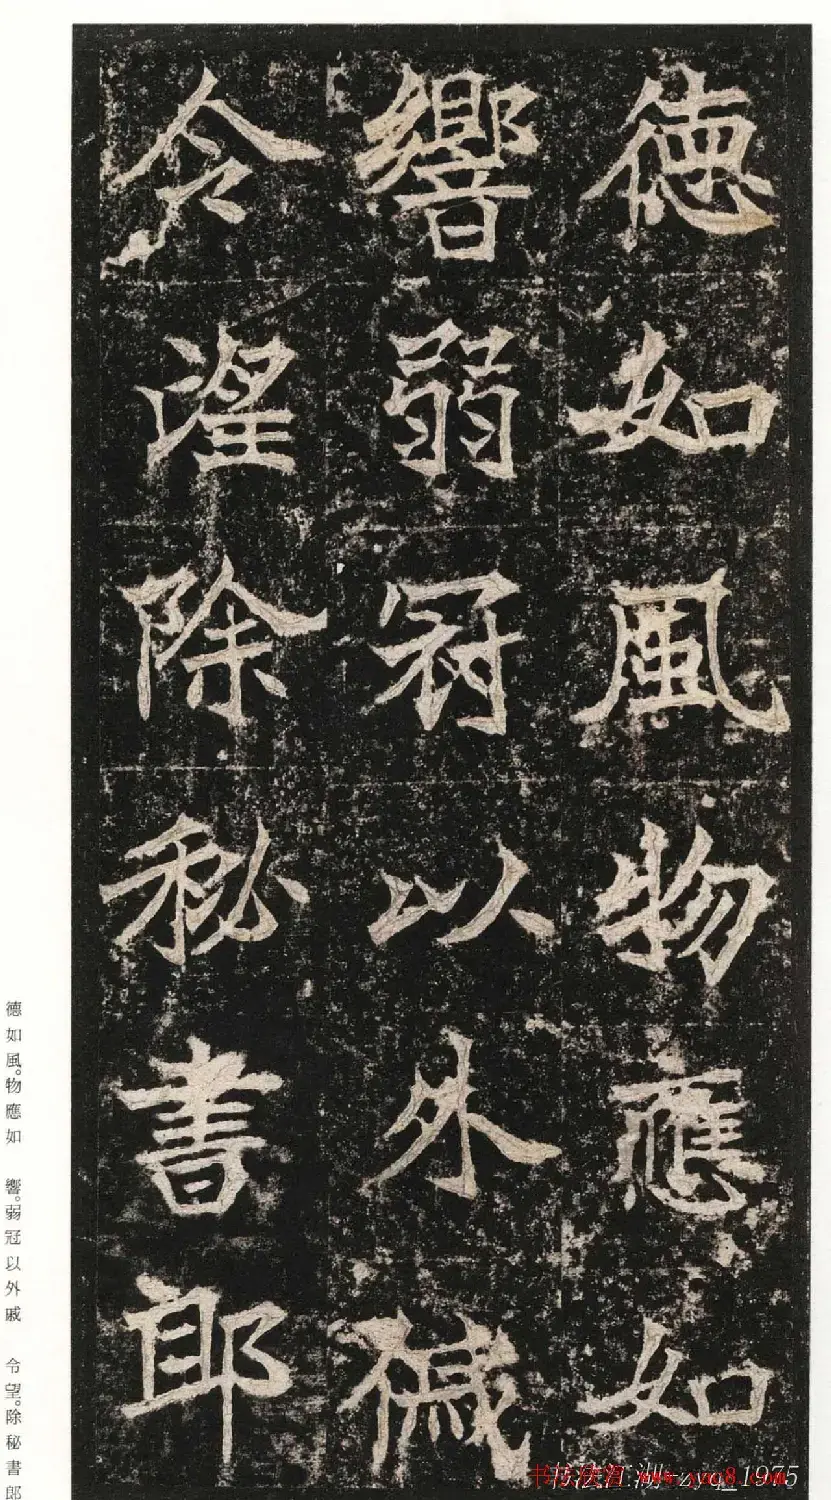 德如風物應如
響弱冠以外戚
令望除秘書郎
德如風。物應如 響。弱冠以外戚 令望。除秘書郎
www.yac8.com
1975